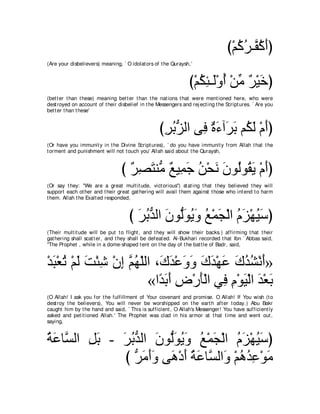 ﴿أَكُفَّـرُكُمْ﴾
(Are your disbelievers) meaning, `O idolators of the Quraysh,'
﴿خَيْرٌ مِّنْ أُوْلَـئِكُمْ﴾
(better than these) meaning better than the nations that were mentioned here, who were
destroyed on account of their disbelief in the Messengers and rejecting the Scriptures. `Are you
better than these'
﴿أَمْ لَكُم بَرَآءَةٌ فِى الزُّبُرِ﴾
(Or have you immunity in the Divine Scriptures), `do you have immunity from Allah that the
torment and punishment will not touch you' Allah said about the Quraysh,
﴿أَمْ يَقُولُونَ نَحْنُ جَمِيعٌ مُّنتَصِرٌ ﴾
(Or say they: "We are a great multitude, victorious'') stating that they believed they will
support each other and their great gathering will avail them against those who intend to harm
them. Allah the Exalted responded,
﴿سَيُهْزَمُ الْجَمْعُ وَيُوَلُّونَ الدُّبُرَ ﴾
(Their multitude will be put to flight, and they will show their backs.) affirming that their
gathering shall scatter, and they shall be defeated. Al-Bukhari recorded that Ibn `Abbas said,
"The Prophet , while in a dome-shaped tent on the day of the battle of Badr, said,
«أَنْشُدُكَ عَهْدَكَ وَوَعْدَكَ، اللْهُمَّ إِنْ شِئْتَ لَمْ تُعْبَدْ
بَعْدَ الْيَوْمِ فِي الْأَرْضِ أَبَدًا»
(O Allah! I ask you for the fulfillment of Your covenant and promise. O Allah! If You wish (to
destroy the believers), You will never be worshipped on the earth after today.) Abu Bakr
caught him by the hand and said, `This is sufficient, O Allah's Messenger! You have sufficiently
asked and petitioned Allah.' The Prophet was clad in his armor at that time and went out,
saying,
﴿سَيُهْزَمُ الْجَمْعُ وَيُوَلُّونَ الدُّبُرَ - بَلِ السَّاعَةُ
مَوْعِدُهُمْ وَالسَّاعَةُ أَدْهَى وَأَمَرُّ ﴾